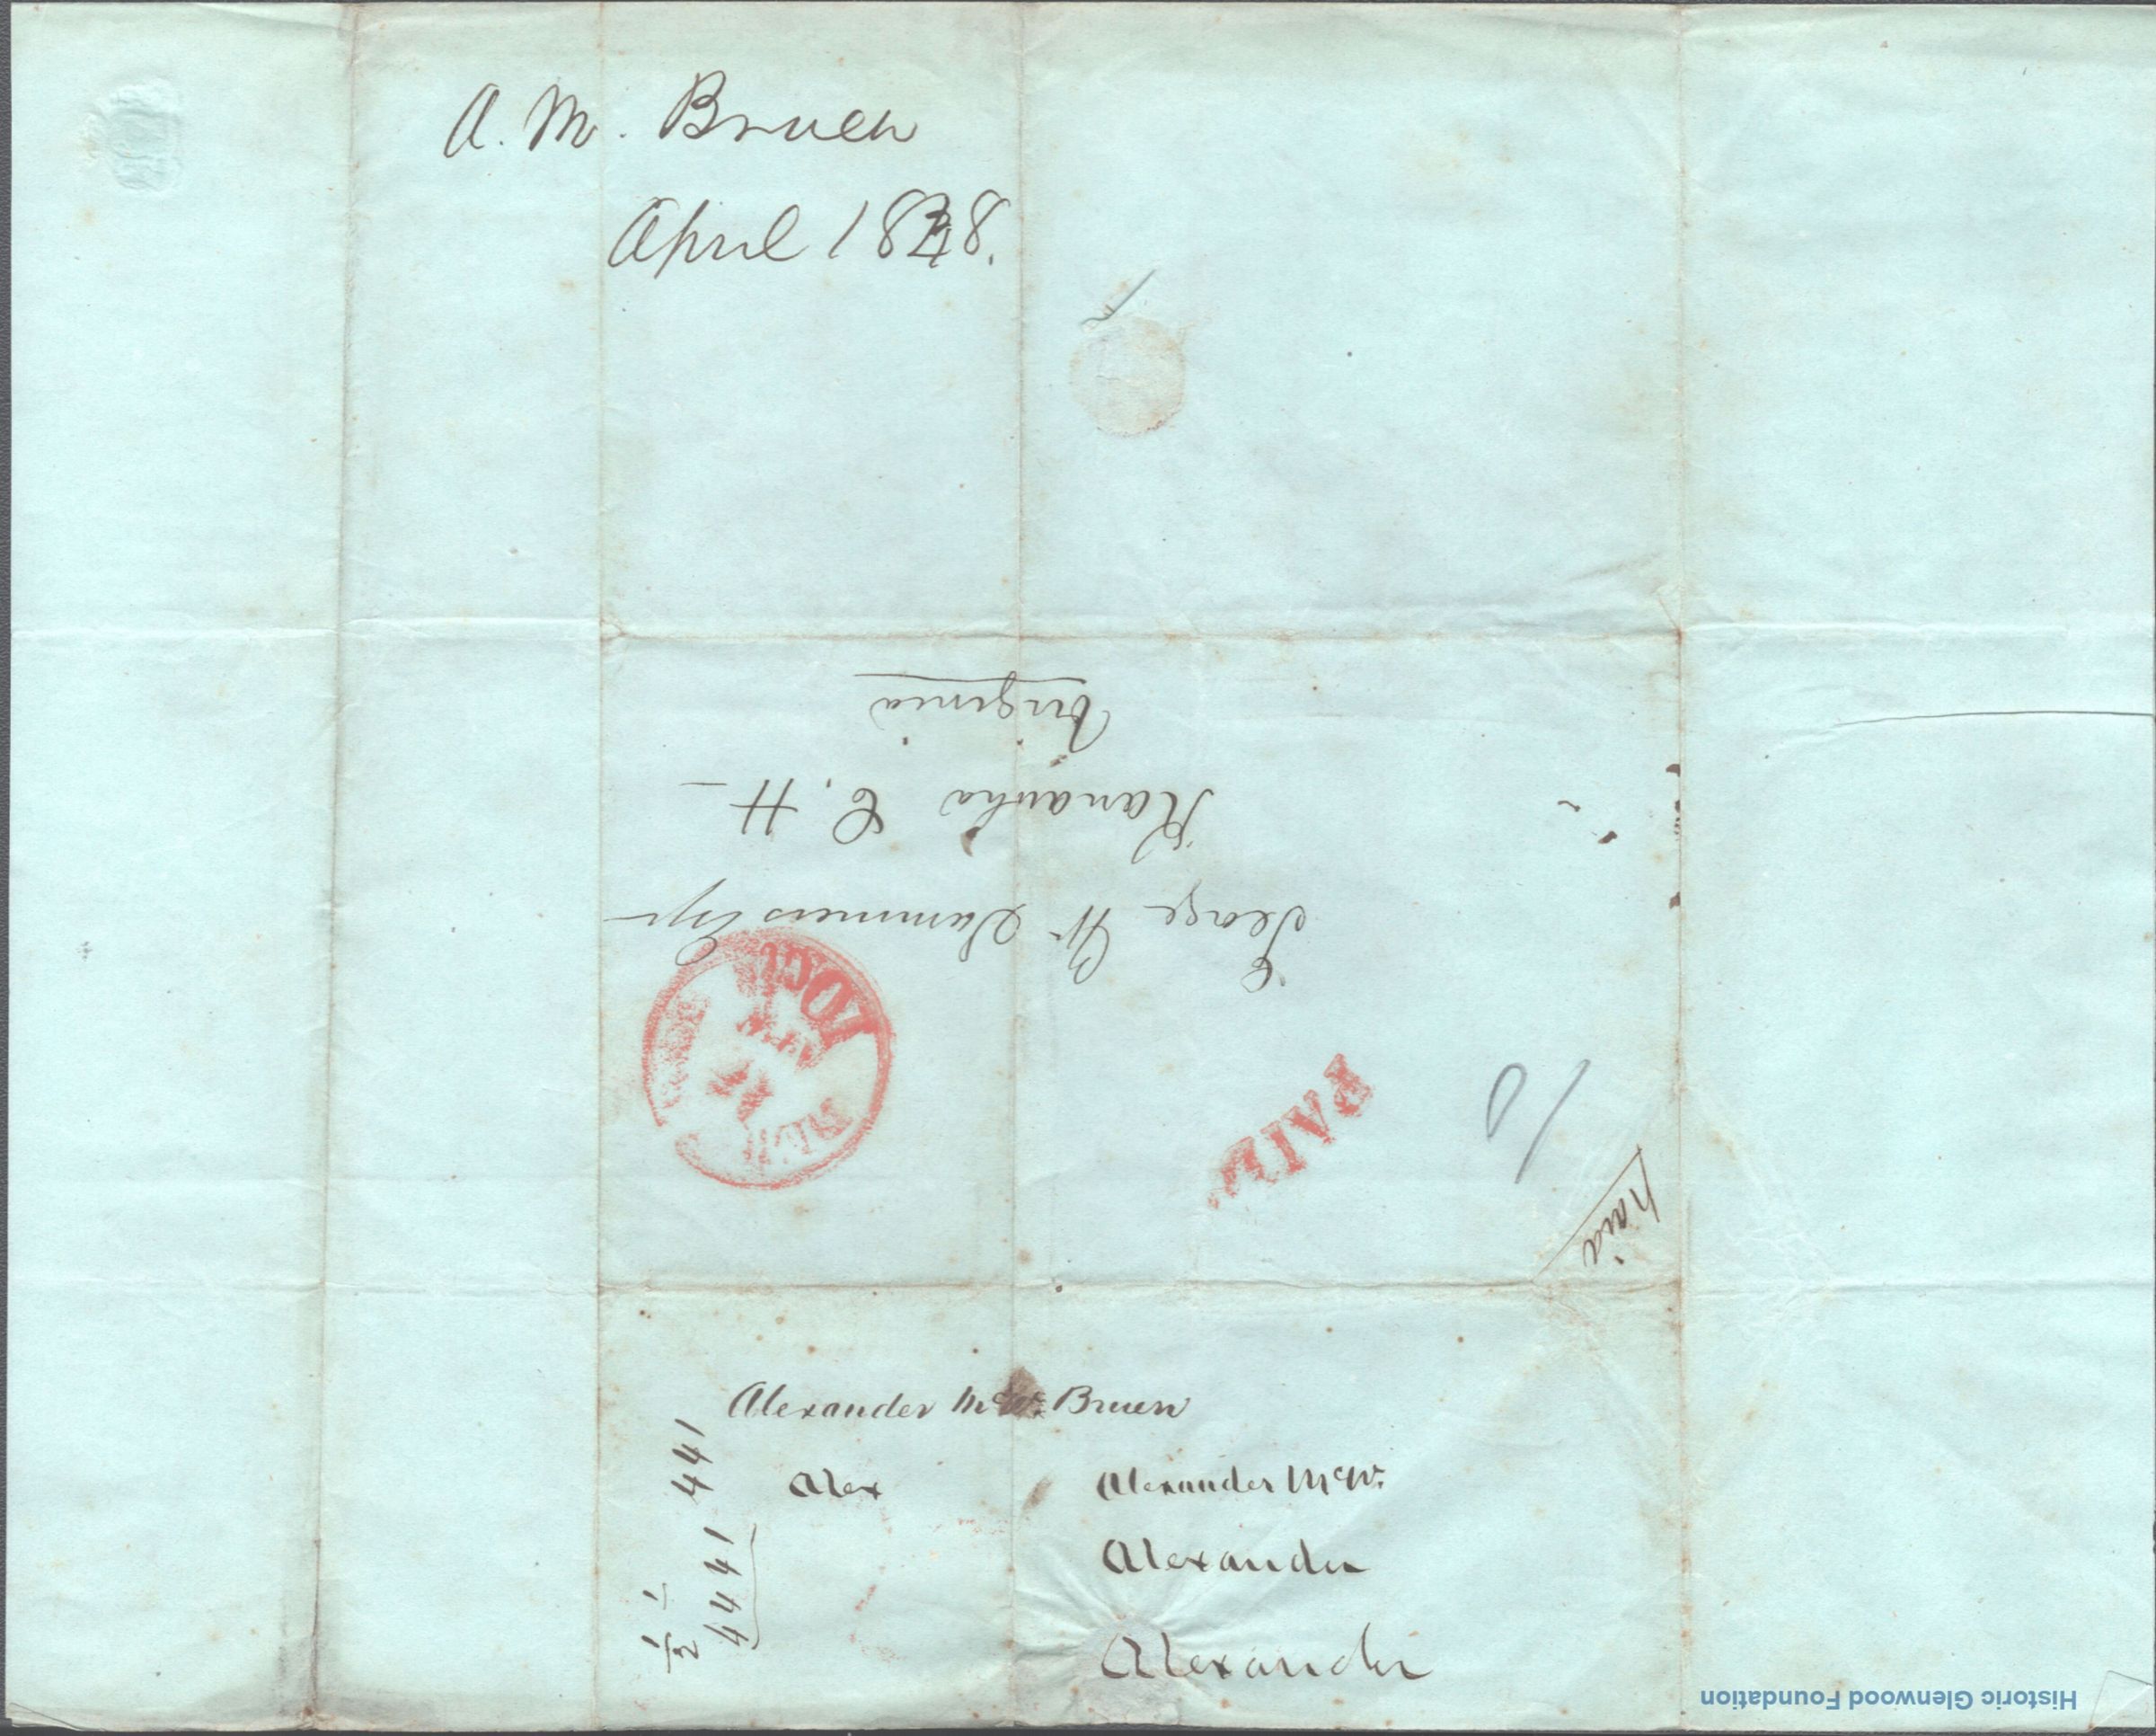 A. M. Bruen
April 1848.
George W. Summers Esqr
Kanawha C. H
Virginia
10 cts
PAID
10
paid
Alexander McW. Bruen
Alex
Alexander McW.
Alexander
Alexander
441
4441
Historic Glenwood Foundation